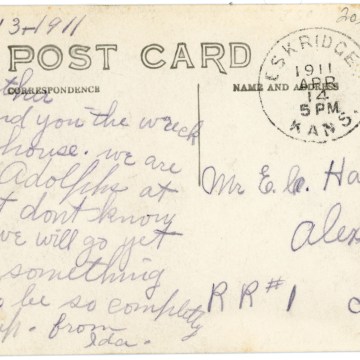 13-1911
20
POST CARD
CORRESPONDENCE
NAME AND ADDRESS
ESKRIDGE
1911
APR
14
5 PM
KANS.
nd you the wreck
house. we are
Adolphs at
t dont know
we will go yet
something
o be so completly
up. from
Ida.
Mr E. Ha
Alex
RR#1